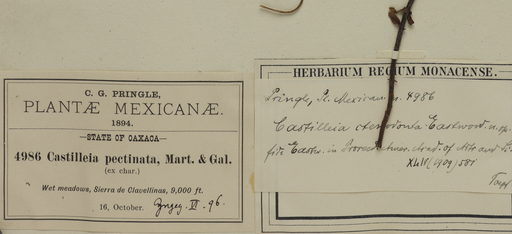 C. G. PRINGLE,
PLANTÆ MEXICANÆ.
1894.
STATE OF OAXACA
4986 Castilleia pectinata, Mart. & Gal.
(ex char.)
Wet meadows, Sierra de Clavellinas, 9,000 ft.
16, October. VI. 96.
HERBARIUM REGIUM MONACENSE.
Pringle, Pl. Mexican. n. 4986
Castilleia ctenodonta Eastwood. n. sp.
fide Eastw. in Acad. of Arts and
XLIV (1909) 587